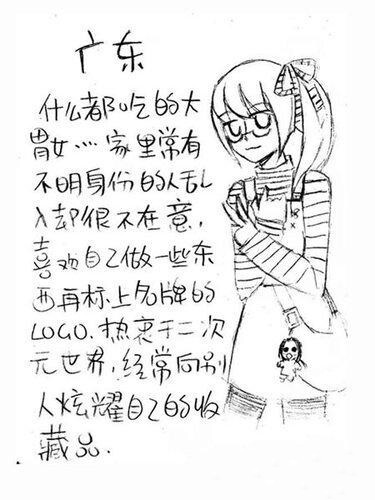 广东
什么都吃的大
胃女…家里常有
不明身份的人乱
入却很不在意，
喜欢自己做一些东
西再标上名牌的
LOGO.热衷于二次
元世界.经常向别
人炫耀自己的收
藏品.